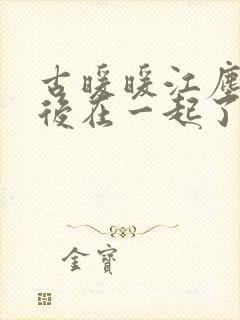 古暖暖江塵
後在一起了
金寶